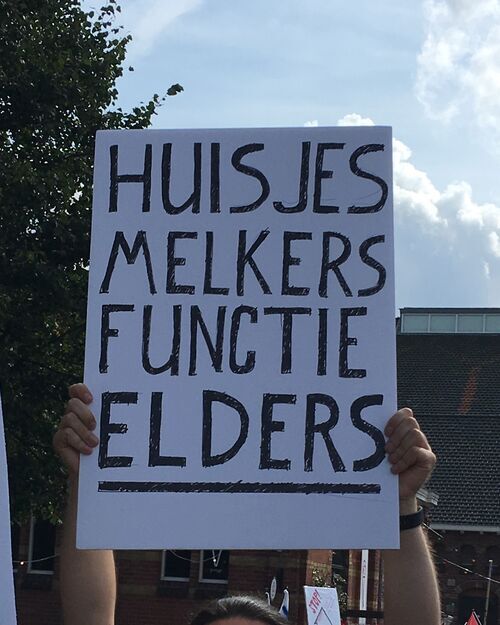 HUISJES
MELKERS
FUNCTIE
ELDERS
STOP!